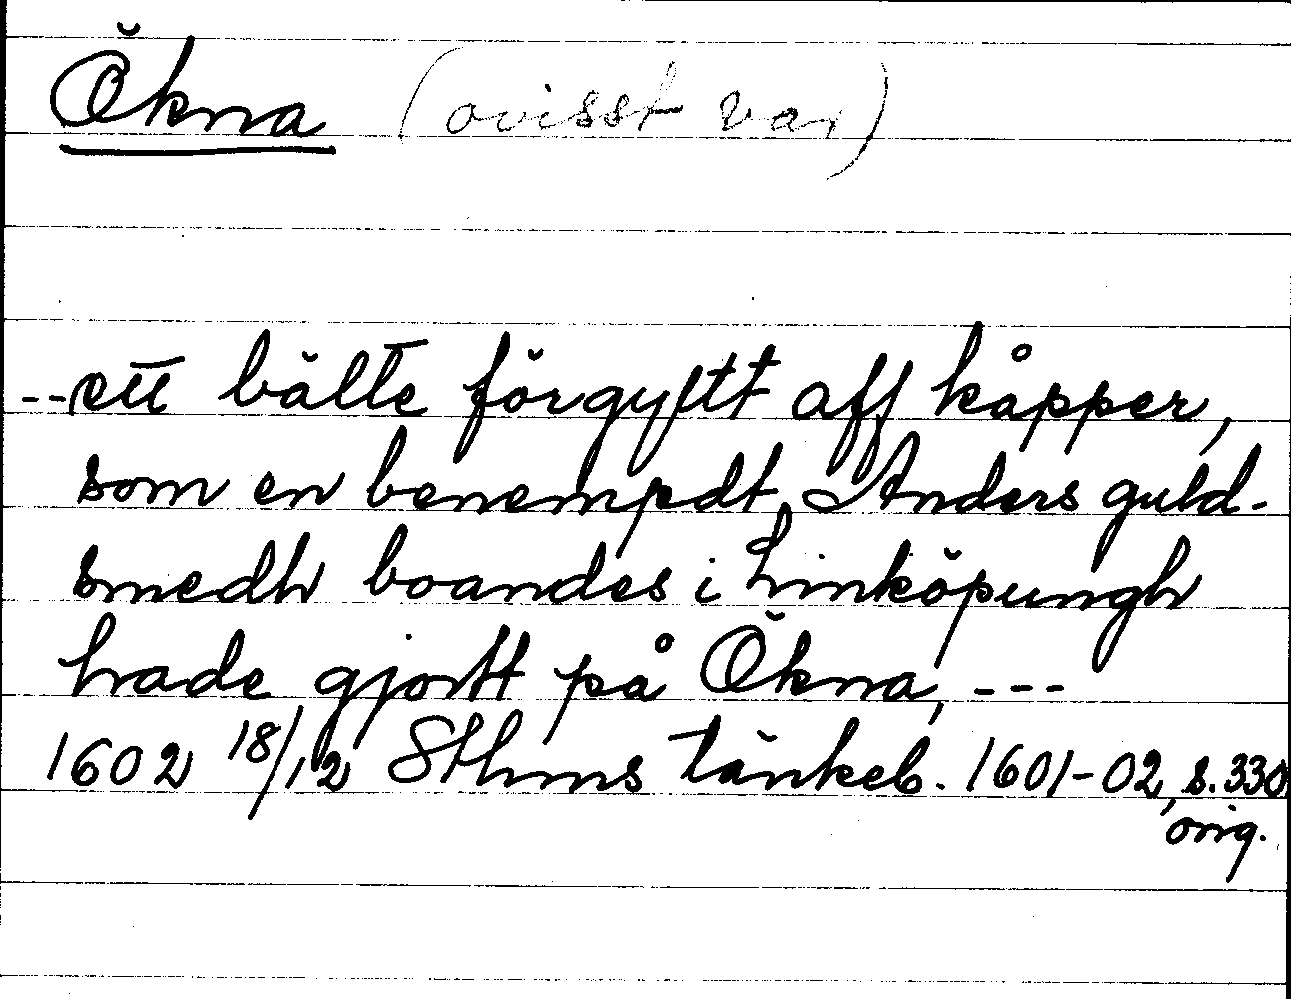 Ökna (ovisst var)
--ett bälte förgyltt aff kåpper,
som en benempdt Anders guld-
smedh boandes i Linköpungh
hade gjortt på Ökna, ---
1602 18/12 Sthms tänkeb. 1601-02, s. 330
orig.